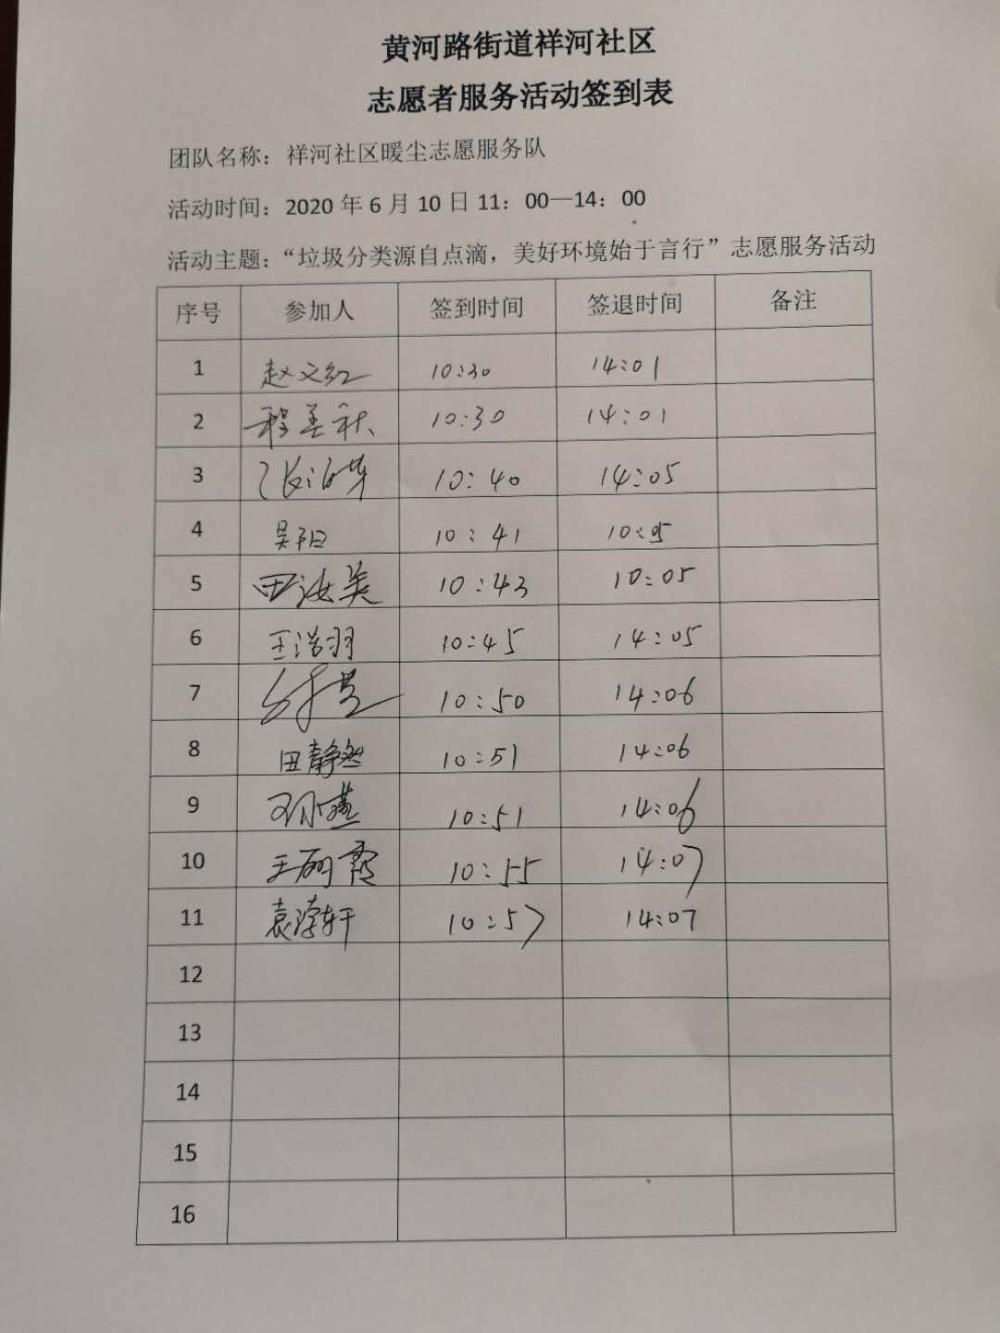 黄河路街道祥河社区
志愿者服务活动签到表
团队名称：祥河社区暖尘志愿服务队
活动时间：2020 年 6 月 10 日 11：00—14：00
活动主题：“垃圾分类源自点滴，美好环境始于言行”志愿服务活动
序号 参加人 签到时间 签退时间 备注
1 赵文红 10:30 14:01
2 程美秋 10:30 14:01
3 10:40 14:05
4 吴阳 10:41 10:05
5 田汝美 10:43 10:05
6 王浩羽 10:45 14:05
7 10:50 14:06
8 田静 10:51 14:06
9 10:51 14:06
10 王丽霞 10:55 14:07
11 袁 轩 10:57 14:07
12
13
14
15
16